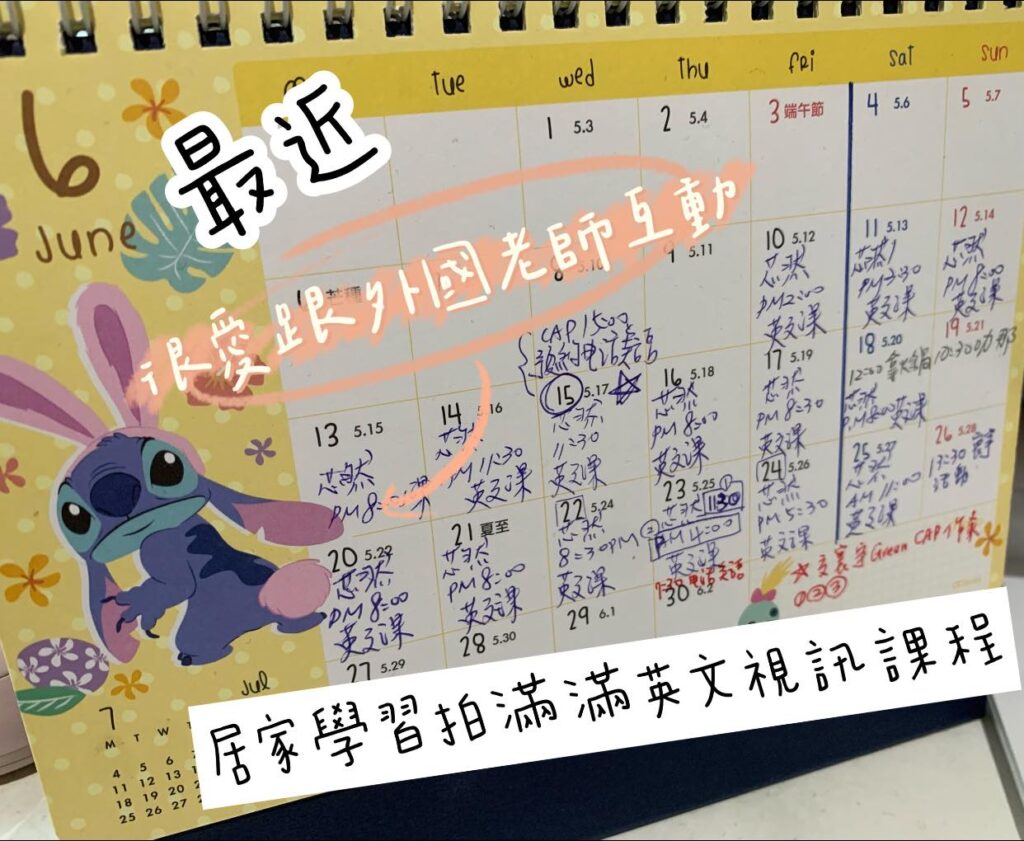 6
June
最近
很愛跟外國老師互動
居家學習拍滿滿英文視訊課程
Tue
wed
Thu
fRi
sat
sun
1 5.3
2 5.4
3 端午節
4 5.6
5 5.7
8 5.10
9 5.11
10 5.12
芯然
PM2:00
英文課
11 5.13
芯然
PM3:30
英文課
12 5.14
芯然
PM8:00
英文課
CAP 1500
13 5.15
芯然
PM8
课
14 5.16
PM 11:30
英文課
15 5.17
芯然
11:30
英文課
16 5.18
芯然
PM 8:00
英文課
17 5.19
芯然
PM 8:30
英文課
18 5.20
12:00
芯然
PM8:00 英文課
19 5.21
10:30
20 5.22
芯然
PM 8:00
英文課
21 夏至
芯然
PM8:00
英文課
22 5.24
芯然
8:30PM
英文課
23 5.25
① 11:30
② PM 4:00
英文課
24 5.26
芯然
PM 5:30
英文課
25 5.27
AM 11:00
英文課
26 5.28
13:30
活動
27 5.29
28 5.30
29 6.1
30 6.2
Green CAP
①②③
7
Jul
M T W
4 5 6
11 12 13
18 19 20
25 26 27